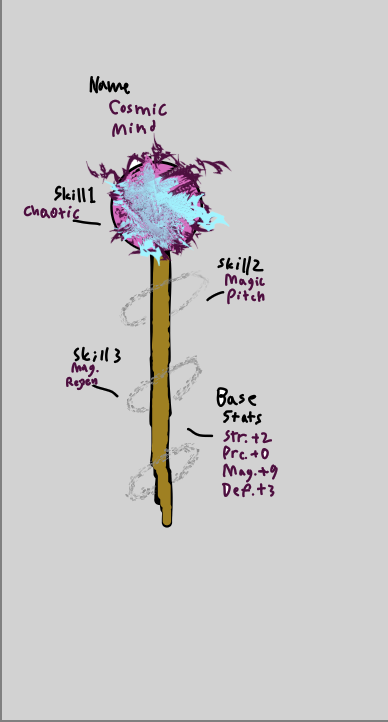 Name
Cosmic
Mind
Skill1
Chaotic
Skill2
Magic
Pitch
Skill3
Mag.
Regen
Base
Stats
Str.+2
Prc.+0
Mag.+9
Def.+3